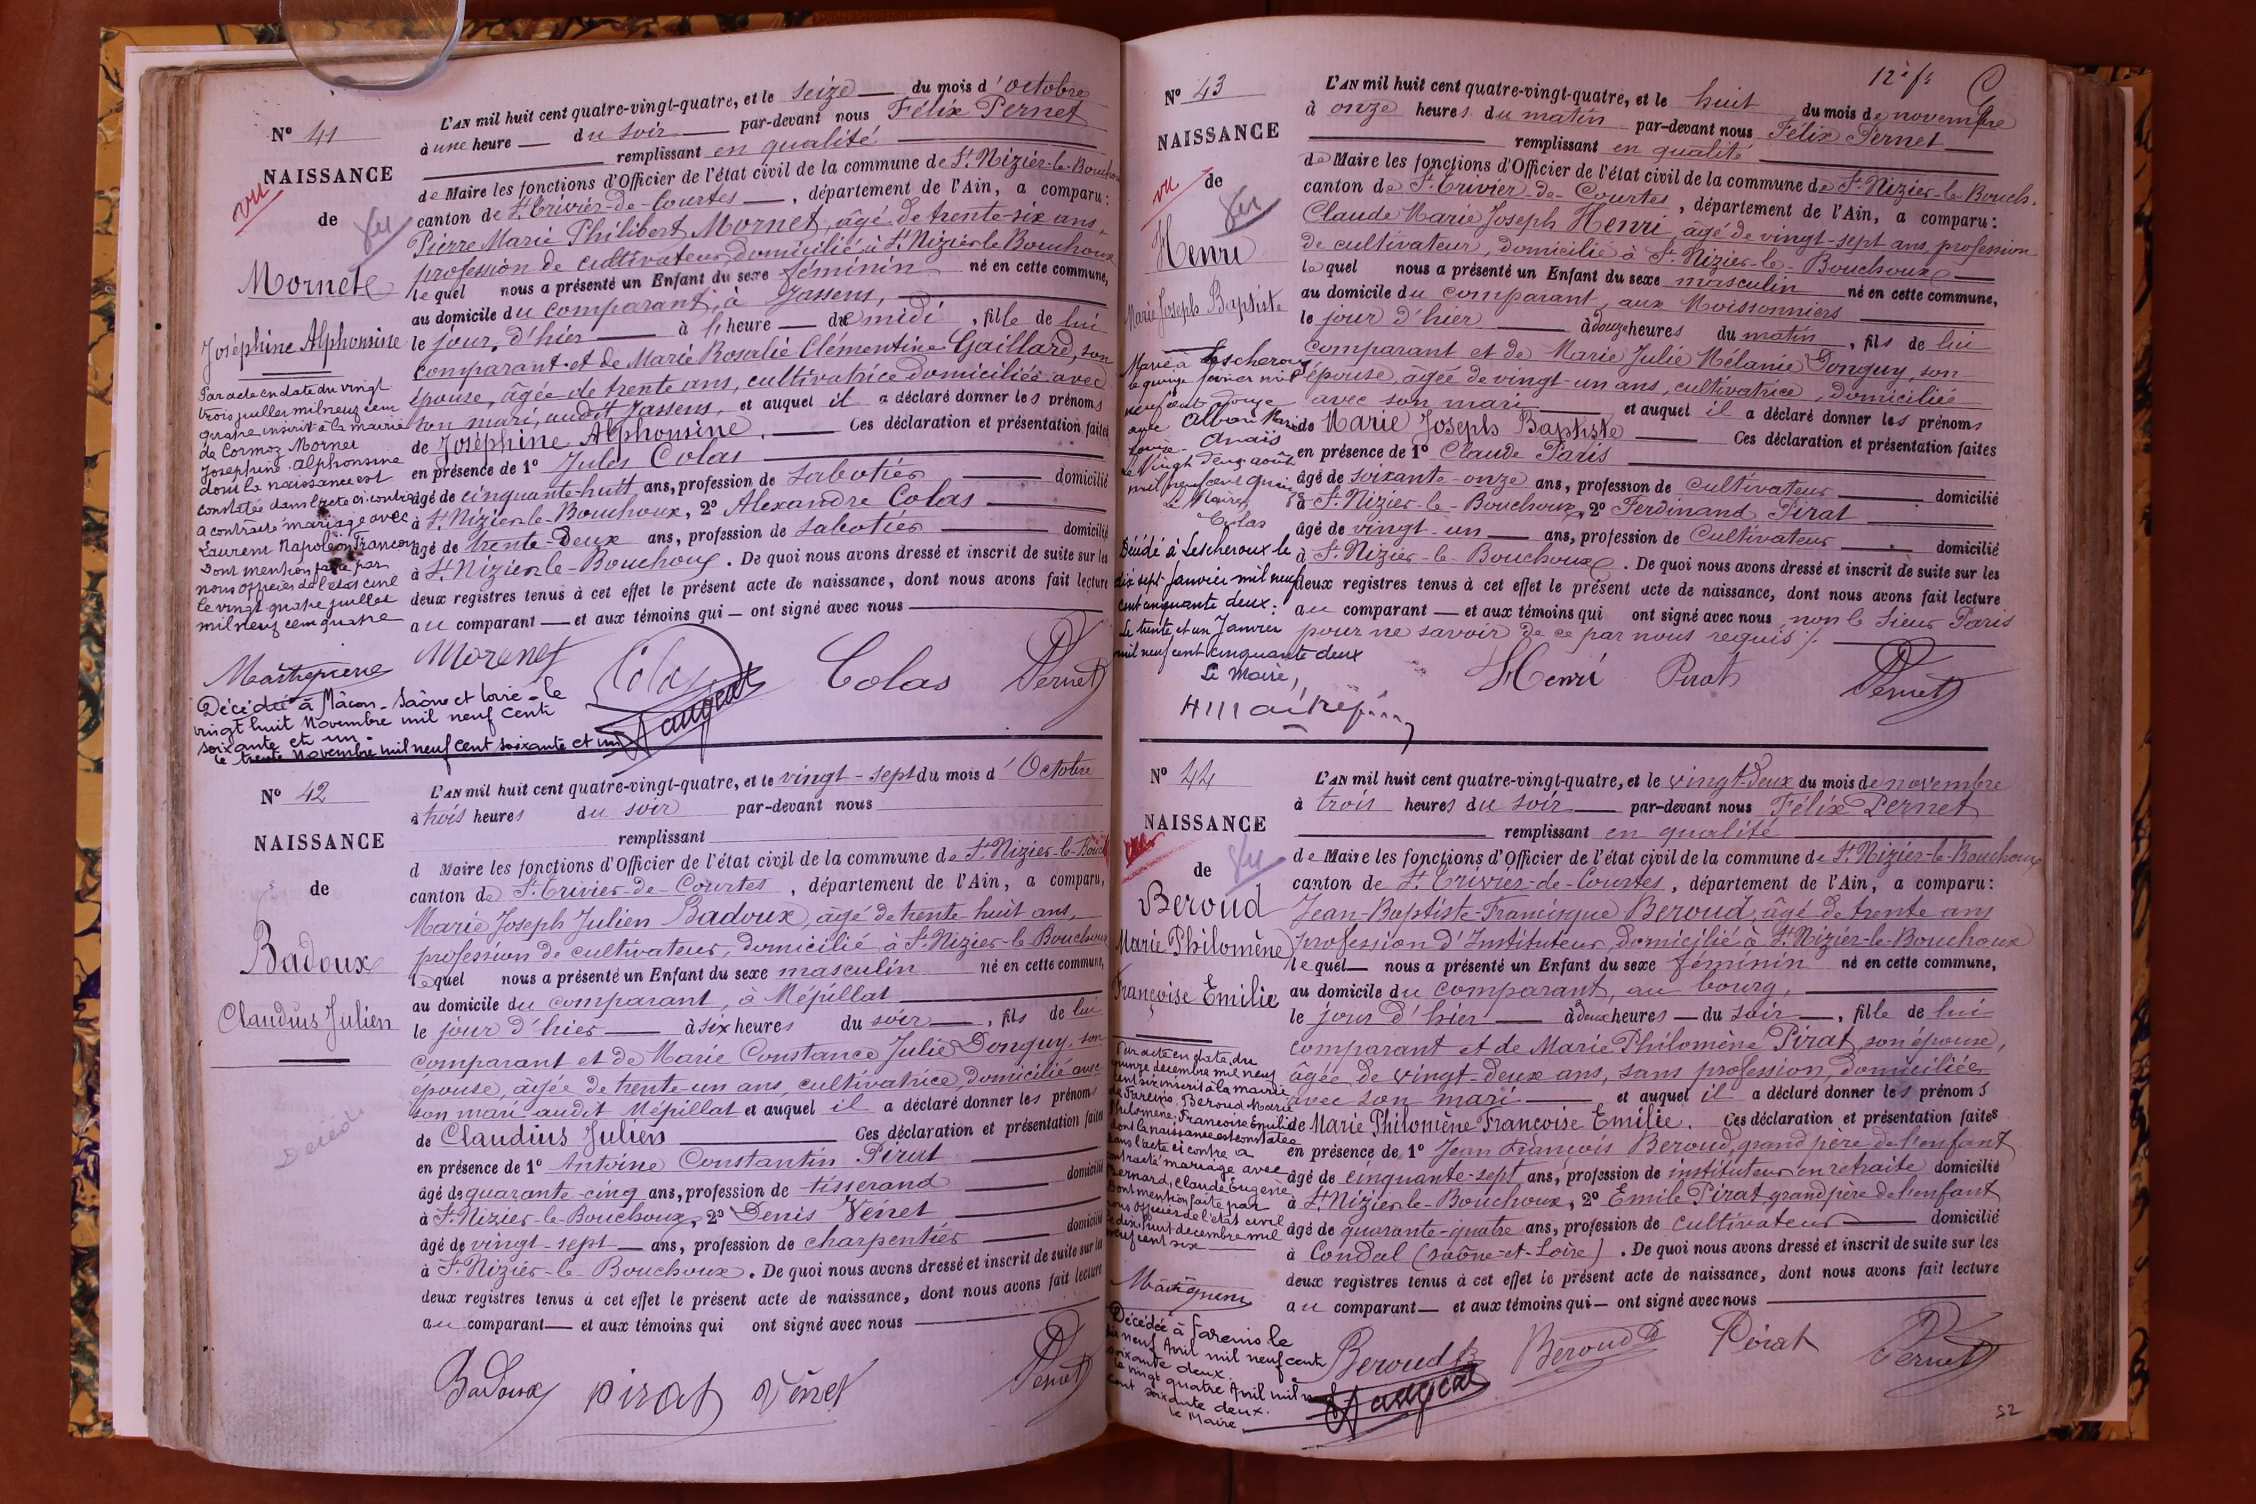 Nº 41
NAISSANCE
vu
de
Mornet
Joséphine Alphonsine
Par acte en date du vingt
trois juillet mil neuf cent
quatre inscrit à la mairie
de Cormoz Mornet
Joséphine Alphonsine
dont la naissance est
constatée dans l'acte ci contre
a contracté mariage avec
Laurent Napoléon Francon
Dont mention faite par
nous officier de l'état civil
le vingt quatre juillet
mil neuf cent quatre
Décédée à Mâcon - Saône et Loire - le
vingt huit Novembre mil neuf cent
soixante et un.
le trente Novembre mil neuf cent soixante et un
L'AN mil huit cent quatre-vingt-quatre, et le seize du mois d'octobre
à une heure du soir par-devant nous Félix Pernet
remplissant en qualité
de Maire les fonctions d'Officier de l'état civil de la commune de St Nizier-le-Bouchoux
canton de St Trivier-de-Courtes, département de l'Ain, a comparu:
Pierre Marie Philibert Mornet, âgé de trente-six ans,
profession de cultivateur, domicilié à St Nizier le Bouchoux
lequel nous a présenté un Enfant du sexe féminin né en cette commune,
au domicile du comparant, à Jassens,
le jour d'hier à heure midi, fille de lui
comparant et de Marie Rosalie Clémentine Gaillard, son
épouse, âgée de trente ans, cultivatrice domiciliée avec
son mari, audit Jassens, et auquel il a déclaré donner les prénoms
de Joséphine Alphonsine. Ces déclaration et présentation faites
en présence de 1º Jules Colas
âgé de cinquante-huit ans, profession de sabotier domicilié
à St Nizier-le-Bouchoux, 2º Alexandre Colas
âgé de trente-deux ans, profession de sabotier domicilié
à St Nizier-le-Bouchoux. De quoi nous avons dressé et inscrit de suite sur les
deux registres tenus à cet effet le présent acte de naissance, dont nous avons fait lecture
au comparant et aux témoins qui ont signé avec nous
Morenet Colas Colas Pernet
Nº 42
NAISSANCE
de
Badoux
Claudius Julien
Décédé
L'AN mil huit cent quatre-vingt-quatre, et le vingt-sept du mois d'Octobre
à trois heures du soir par-devant nous
remplissant
d Maire les fonctions d'Officier de l'état civil de la commune de St Nizier-le-Bouch
canton de St Trivier-de-Courtes, département de l'Ain, a comparu,
Marie Joseph Julien Badoux, âgé de trente huit ans,
profession de cultivateur, domicilié à St Nizier-le-Bouchoux
lequel nous a présenté un Enfant du sexe masculin né en cette commune,
au domicile du comparant, à Mépillat
le jour d'hier à six heures du soir, fils de lui
comparant et de Marie Constance Julie Donguy, son
épouse, âgée de trente-un ans, cultivatrice, domicilié avec
son mari audit Mépillat et auquel il a déclaré donner les prénoms
de Claudius Julien Ces déclaration et présentation faites
en présence de 1º Antoine Constantin Pirat
âgé de quarante-cinq ans, profession de tisserand domicilié
à St Nizier-le-Bouchoux, 2º Denis Vénet
âgé de vingt-sept ans, profession de charpentier domicilié
à St Nizier-le-Bouchoux. De quoi nous avons dressé et inscrit de suite sur les
deux registres tenus à cet effet le présent acte de naissance, dont nous avons fait lecture
au comparant et aux témoins qui ont signé avec nous
Badoux pirat Vénet Pernet
Nº 43
NAISSANCE
vu
de
Henri
Marie Joseph Baptiste
Marié à Lescheroux
le quinze février mil
neuf cent douze
avec
Anaïs
Louise
Le vingt deux août
mil neuf cent quinze
Le Maire,
Colas
Décédé à Lescheroux le
dix sept Janvier mil neuf
cent cinquante deux:
Le trente et un Janvier
mil neuf cent cinquante deux
Le Maire,
L'AN mil huit cent quatre-vingt-quatre, et le huit du mois de novembre
à onze heures du matin par-devant nous Félix Pernet
remplissant en qualité
de Maire les fonctions d'Officier de l'état civil de la commune de St Nizier-le-Bouch.
canton de St Trivier-de-Courtes, département de l'Ain, a comparu:
Claude Marie Joseph Henri, âgé de vingt-sept ans, profession
de cultivateur, domicilié à St Nizier-le-Bouchoux
lequel nous a présenté un Enfant du sexe masculin né en cette commune,
au domicile du comparant, aux Moissonniers
le jour d'hier à douze heures du matin, fils de lui
comparant et de Marie Julie Mélanie Donguy, son
épouse, âgée de vingt-un ans, cultivatrice, domiciliée
avec son mari et auquel il a déclaré donner les prénoms
de Marie Joseph Baptiste Ces déclaration et présentation faites
en présence de 1º Claude Paris
âgé de soixante-onze ans, profession de cultivateur domicilié
à St Nizier-le-Bouchoux, 2º Ferdinand Pirat
âgé de vingt-un ans, profession de Cultivateur domicilié
à St Nizier-le-Bouchoux. De quoi nous avons dressé et inscrit de suite sur les
deux registres tenus à cet effet le présent acte de naissance, dont nous avons fait lecture
au comparant et aux témoins qui ont signé avec nous, non le sieur Paris
pour ne savoir de ce par nous requis
Henri Pirat Pernet
Nº 44
NAISSANCE
de
Beroud
Marie Philomène
Françoise Emilie
Par acte en date du
quinze décembre mil neuf
cent six inscrit à la mairie
de Fareins, Beroud Marie
Philomène Françoise Emilie
dont la naissance est constatée
dans l'acte ci contre a
contracté mariage avec
Bernard, Claude Eugène
Dont mention faite par
nous officier de l'état civil
le dix huit décembre mil
neuf cent six
Décédée à Fareins le
dix neuf Avril mil neuf cent
soixante deux.
le vingt quatre Avril mil neuf
cent soixante deux.
le Maire
L'AN mil huit cent quatre-vingt-quatre, et le vingt-deux du mois de novembre
à trois heures du soir par-devant nous Félix Pernet
remplissant en qualité
de Maire les fonctions d'Officier de l'état civil de la commune de St Nizier-le-Bouchoux
canton de St Trivier-de-Courtes, département de l'Ain, a comparu:
Jean-Baptiste-Francisque Beroud, âgé de trente ans
profession d'Instituteur, domicilié à St Nizier-le-Bouchoux
lequel nous a présenté un Enfant du sexe féminin né en cette commune,
au domicile du comparant, au bourg,
le jour d'hier à deux heures du soir, fille de lui
comparant et de Marie Philomène Pirat, son épouse,
âgée de vingt-deux ans, sans profession, domiciliée
avec son mari et auquel il a déclaré donner les prénoms
de Marie Philomène Françoise Emilie. Ces déclaration et présentation faites
en présence de 1º Jean François Beroud, grand père de l'enfant
âgé de cinquante-sept ans, profession de instituteur en retraite domicilié
à St Nizier-le-Bouchoux, 2º Emile Pirat grand père de l'enfant
âgé de quarante-quatre ans, profession de cultivateur domicilié
à Condal (Saône-et-Loire). De quoi nous avons dressé et inscrit de suite sur les
deux registres tenus à cet effet le présent acte de naissance, dont nous avons fait lecture
au comparant et aux témoins qui ont signé avec nous
Beroud Beroud Pirat Pernet
52